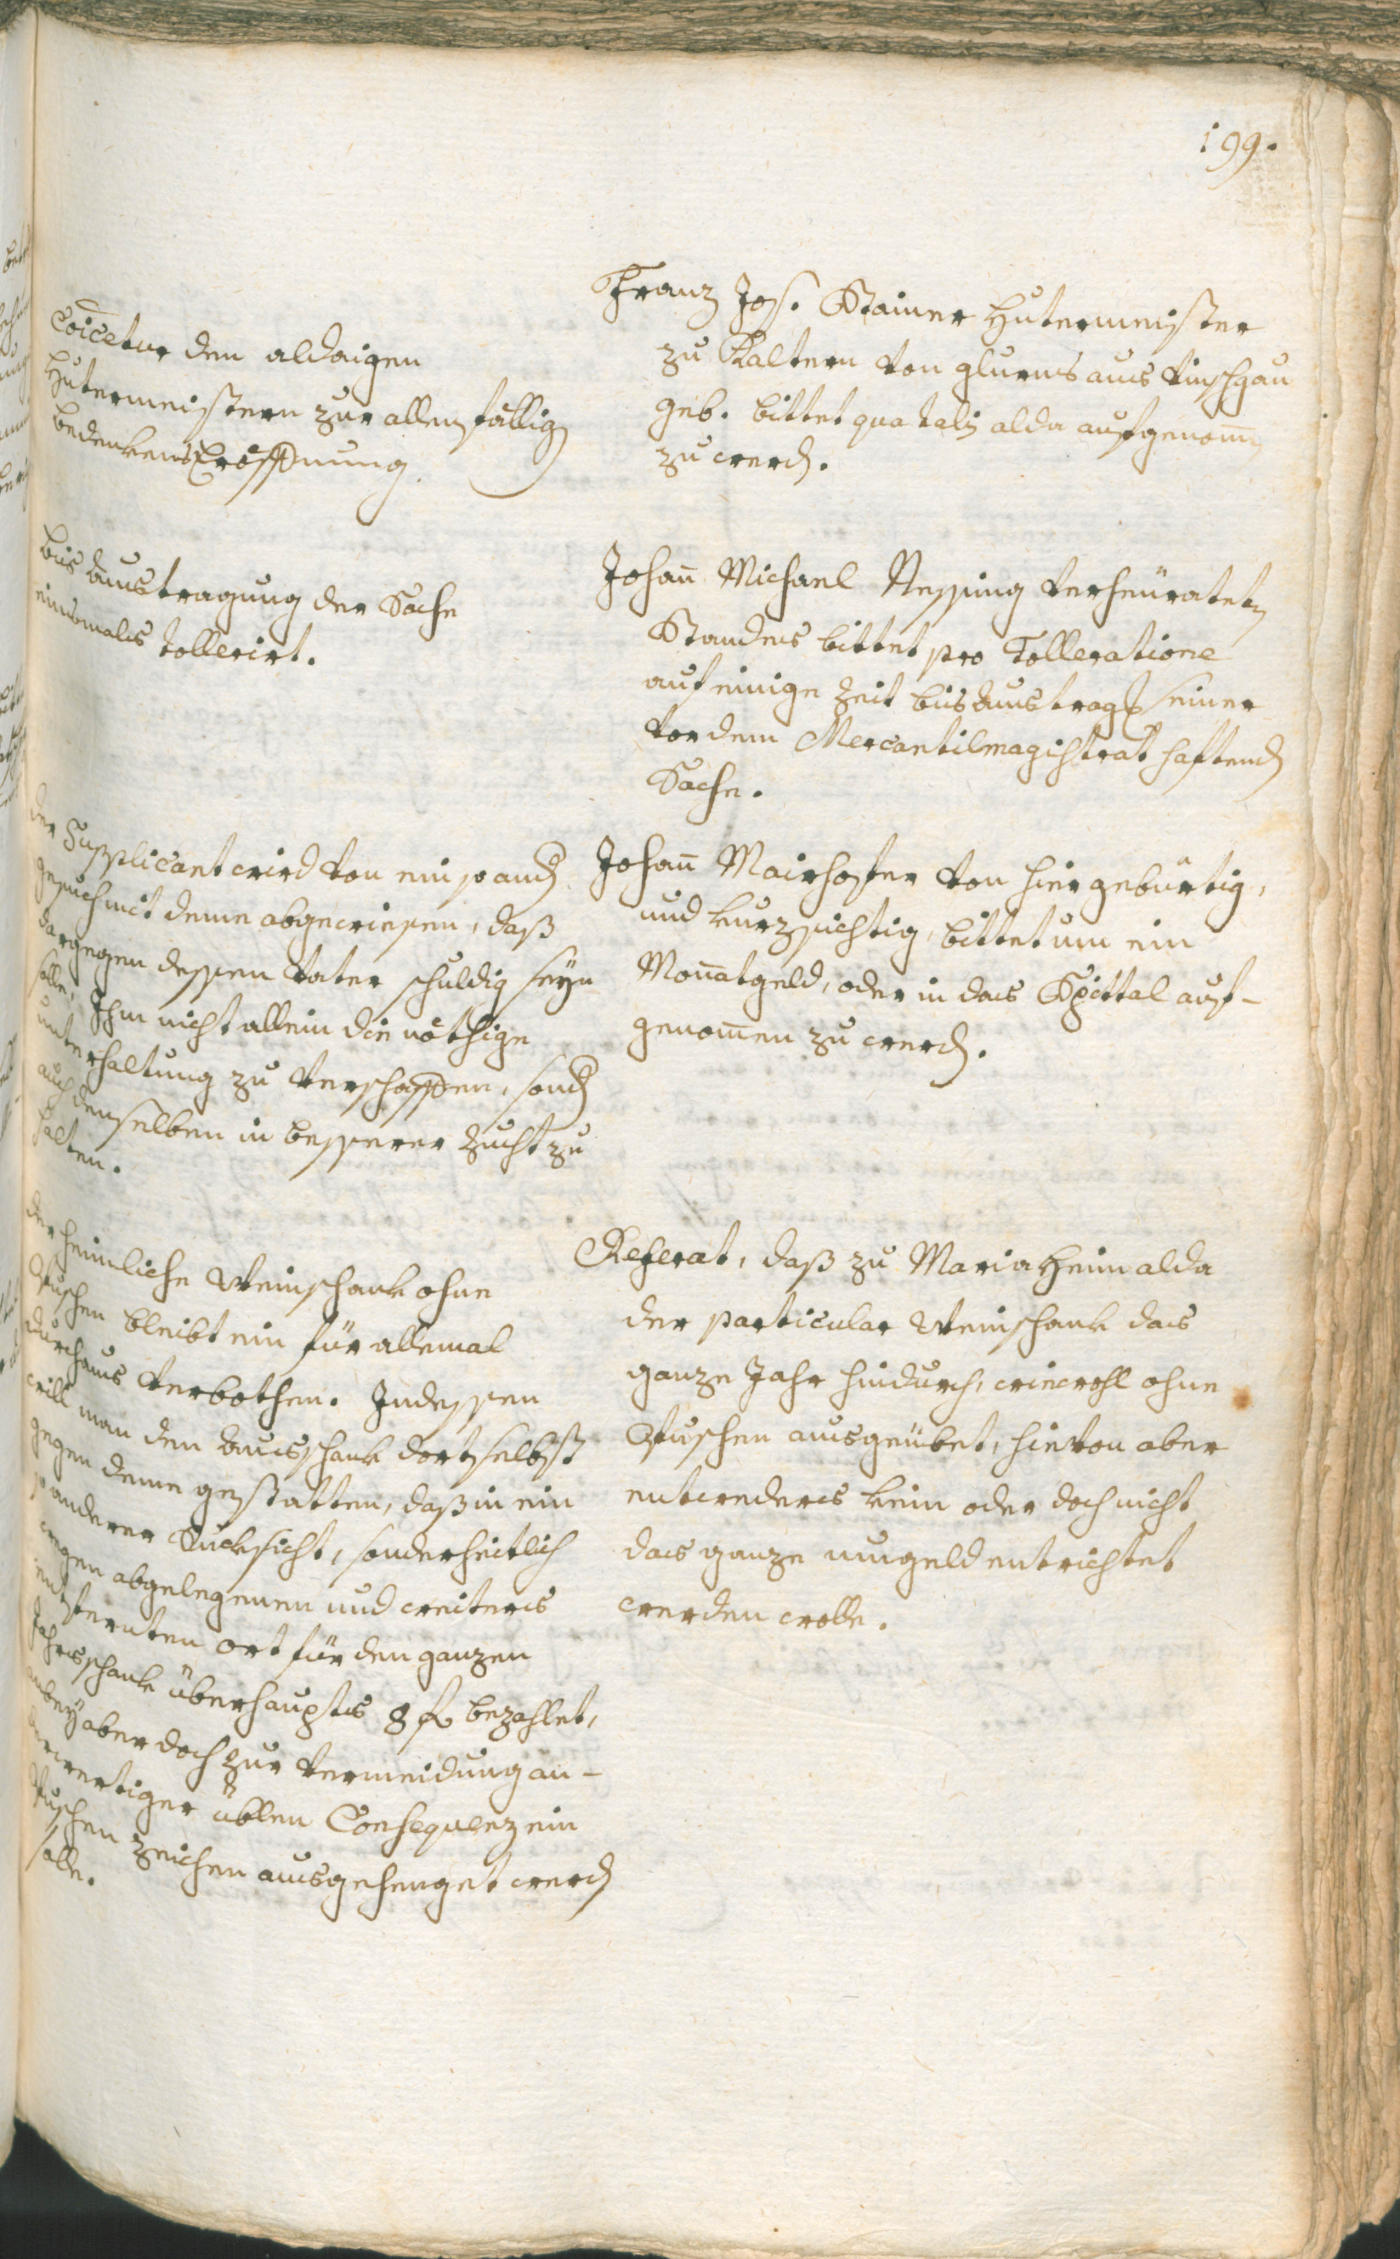 199.
Franz Jos. Stainer Hutermeister
zu Kaltern von glurns aus vinschgau
geb. bittet qua talis alda aufgenom̄en
zu werden.
Coīcetur den aldaigen
Hutermeistern zur allenfällig
bedenkens Eröffnung.
Johañ Michael Nessing verheürateten
Standes bittet pro Tolleratione
auf einige Zeit bis austrags seiner
vor dem Mercantilmagistrat haftenden
Sache.
bis austragung der Sache
einsmals tollerirt.
Johañ Mairhofer von hier gebürtig,
und kurzsichtig, bittet um ein
Monnatgeld, oder in das Spittal auf-
genom̄en zu werden.
der Supplicant wird von ein so andern
gesuch mit deme abgewiesen, daß
dargegen dessen Vater schuldig seyn
solle, Ihm nicht allein die nöthige
unterhaltung zu verschaffen, sondern
auch denselben in besserer Zucht zu
halten.
Referat, daß zu Mariaheim alda
der particular Weinschank das
ganze Jahr hindurch, wiewohl ohne
Puschen ausgeübet, hievon aber
entweders kein oder doch nicht
das ganze umgeld entrichtet
werden wolle.
der heimliche Weinschank ohne
Puschen bleibt ein für allemal
durchaus verbothen. Indessen
will man den Ausschank dortselbst
gegen deme gestatten, daß in ein
so anderer Rucksicht, sonderheitlich
wegen abgelegenen und weiters
entfernten ort für den ganzen
Jahrsschank überhaupts 8 f bezahlet,
anbey aber doch zur vermeidung an-
derwertiger üblen Consequenz ein
Puschen zeichen ausgehenget werden
solle.